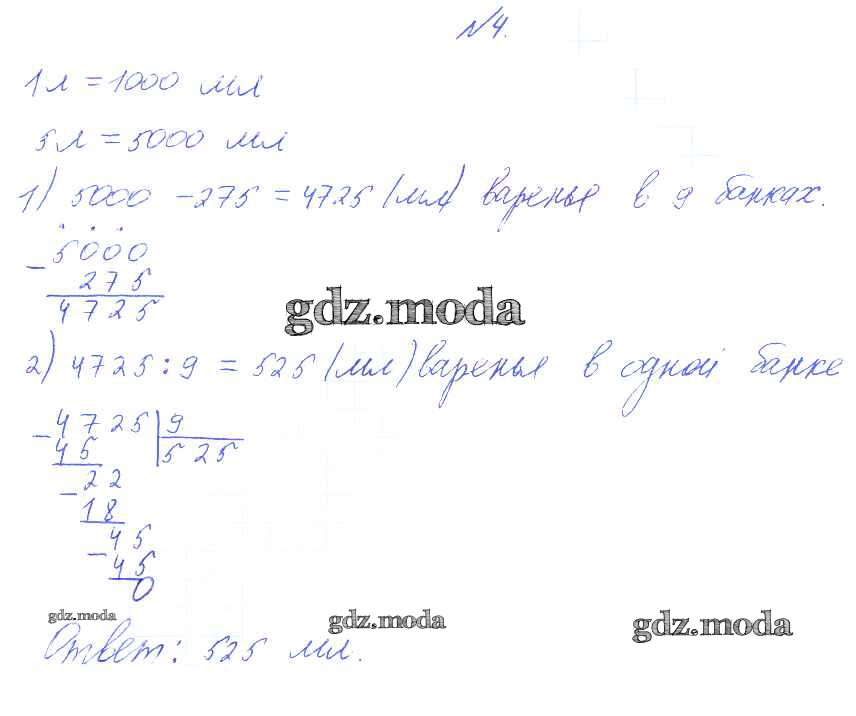 №4.
1л = 1000 мл
5л = 5000 мл
1) 5000 - 275 = 4725 (мл) варенья в 9 банках.
- 5000
275
4725
gdz.moda
2) 4725 : 9 = 525 (мл) варенья в одной банке
- 4725 | 9
45 525
- 22
18
45
- 45
0
gdz.moda
gdz.moda
gdz.moda
Ответ: 525 мл.